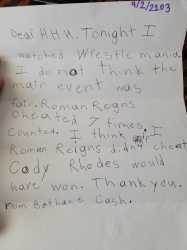 4/2/2103
Dear H.H.H. Tonight I
watched Wrestle mania
I do not think the
main event was
fair. Roman Reigns
cheated 7 times.
Counted. I think if
Roman Reigns didn't cheat
Cody Rhodes would
have won. Thank you.
rom Bathane Cash.